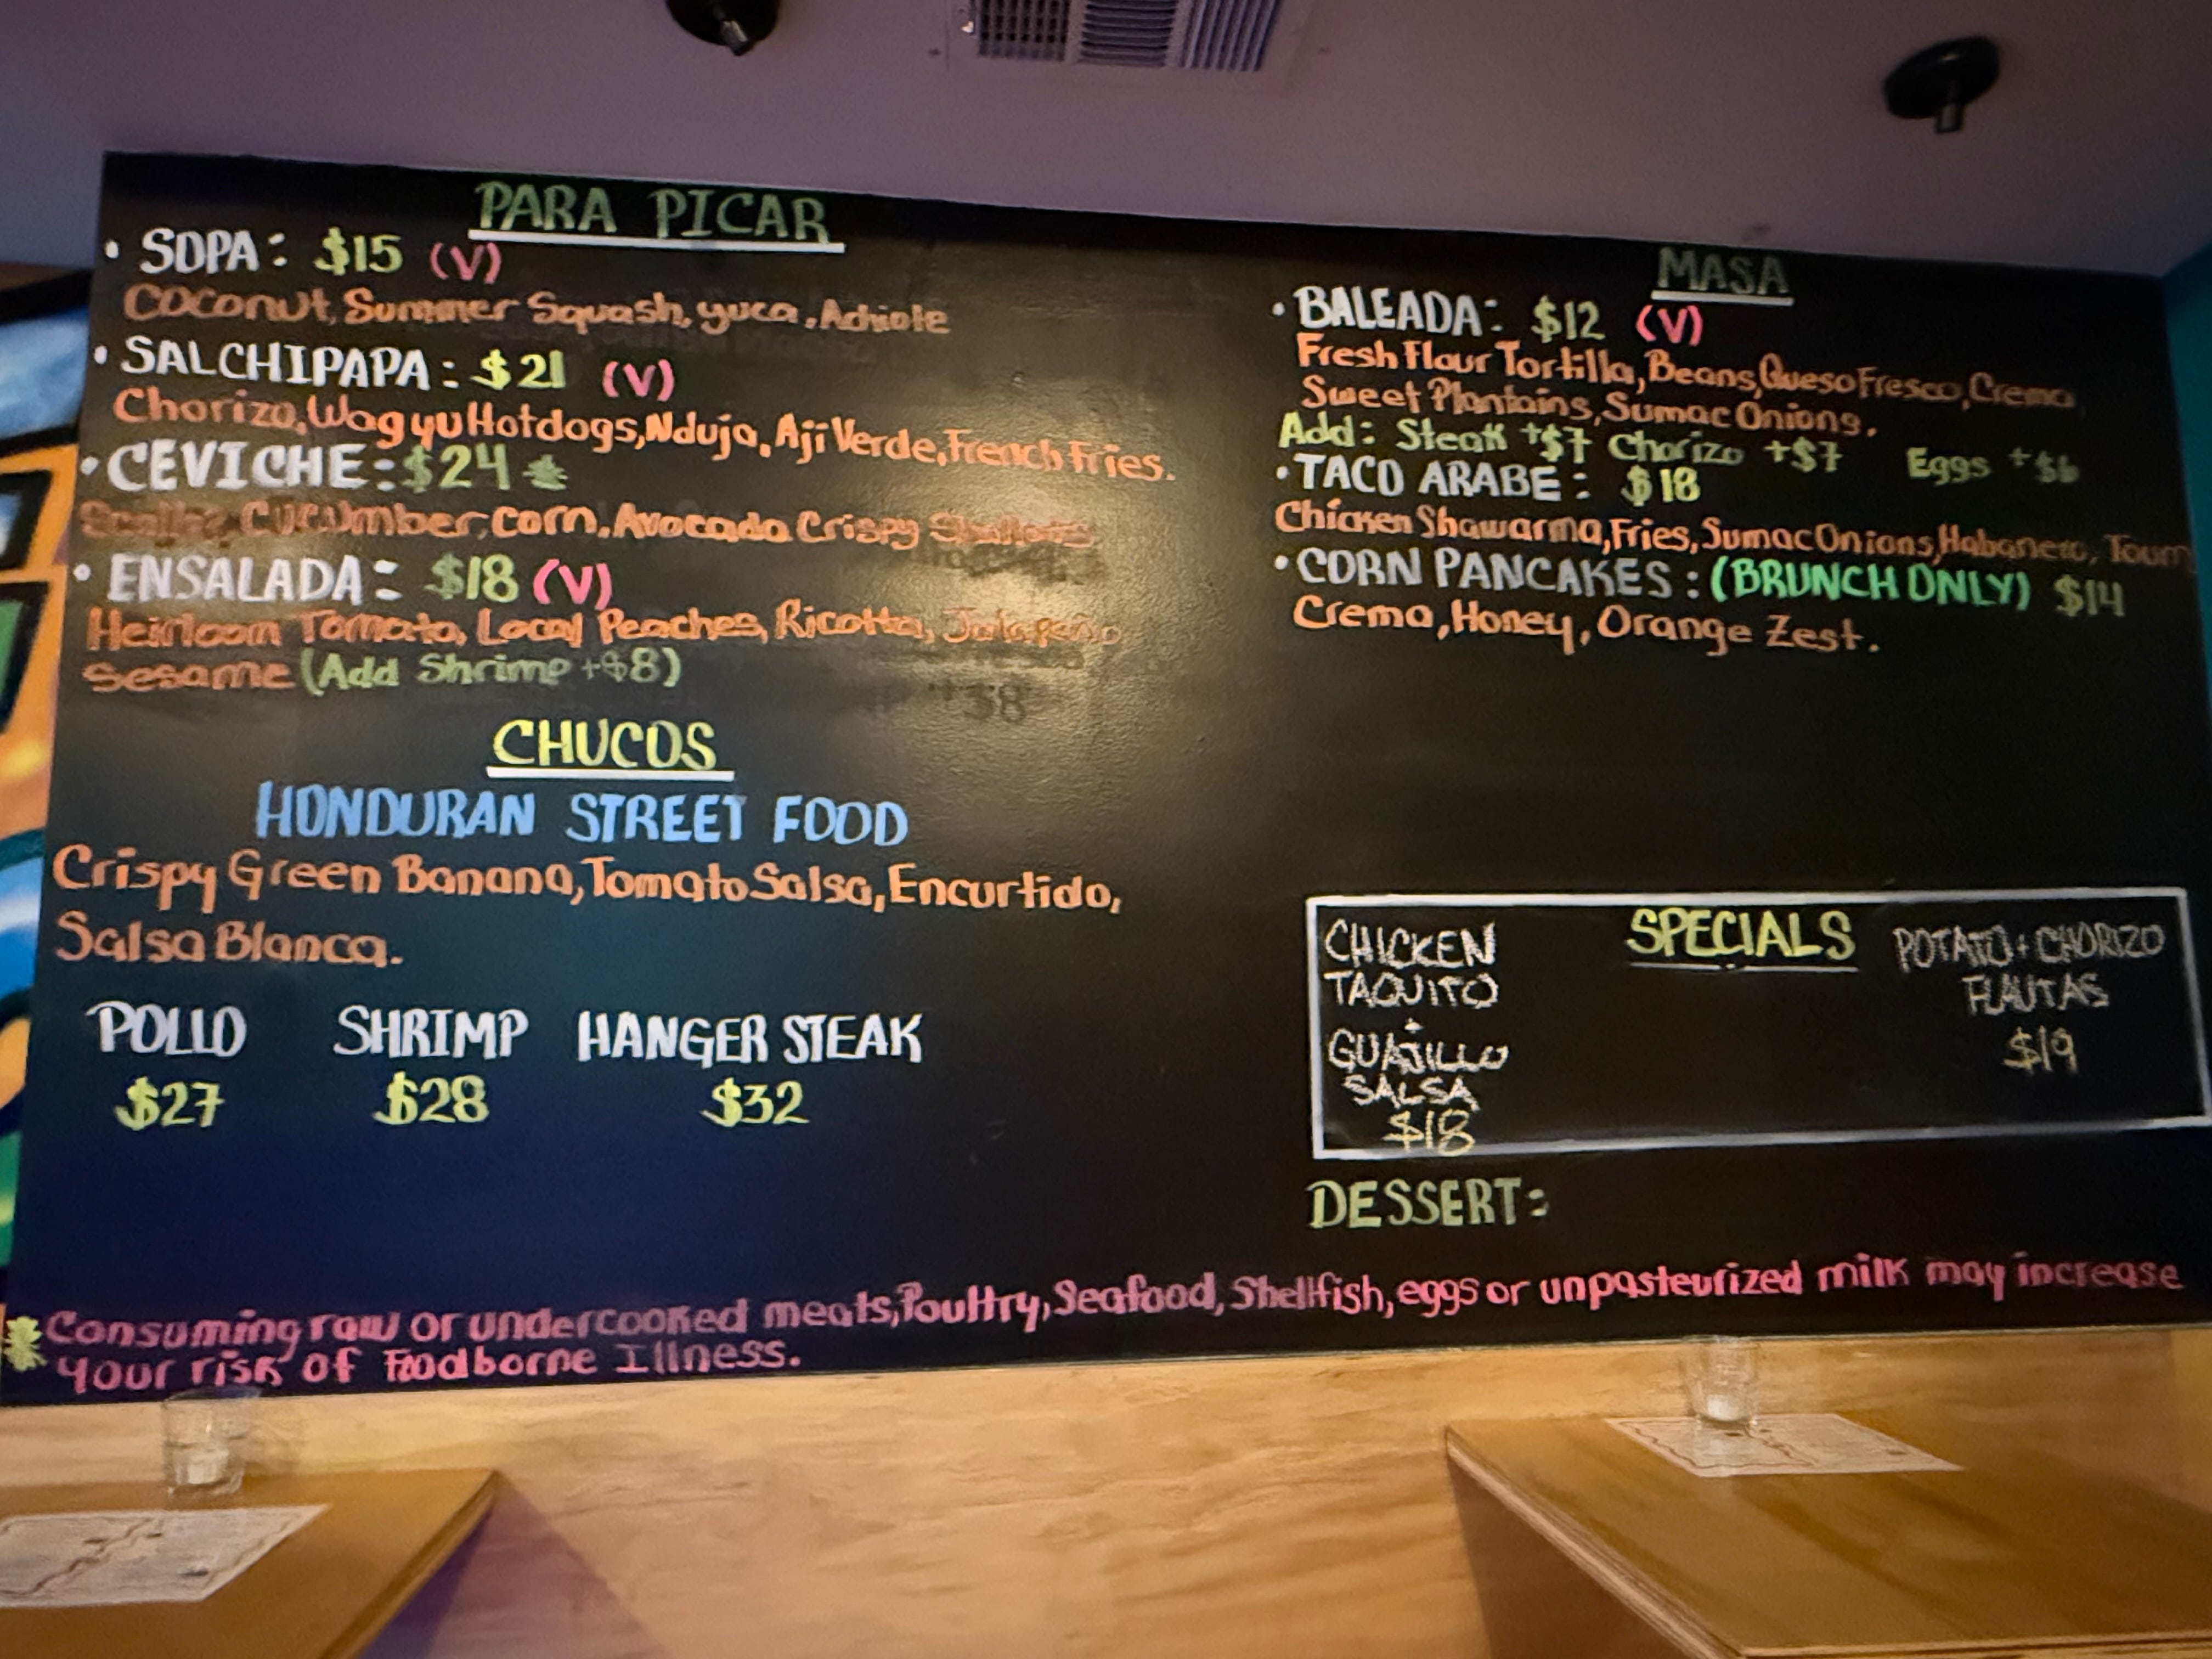 PARA PICAR
• SOPA: $15 (V)
Coconut, Summer Squash, yuca, Achiote
• SALCHIPAPA: $21 (V)
Chorizo, Wagyu Hotdogs, Nduja, Aji Verde, French Fries.
• CEVICHE: $24 *
Cucumber, Corn, Avocado Crispy Shallots
• ENSALADA: $18 (V)
Heirloom Tomato, Local Peaches, Ricotta, Jalapeño
Sesame (Add Shrimp +$8)
CHUCOS
HONDURAN STREET FOOD
Crispy Green Banana, Tomato Salsa, Encurtido,
Salsa Blanca.
POLLO SHRIMP HANGER STEAK
$27 $28 $32
MASA
• BALEADA: $12 (V)
Fresh Flour Tortilla, Beans, Queso Fresco, Crema,
Sweet Plantains, Sumac Onions.
Add: Steak +$7 Chorizo +$7 Eggs +$6
• TACO ARABE: $18
Chicken Shawarma, Fries, Sumac Onions, Habanero, Toum
• CORN PANCAKES: (BRUNCH ONLY) $14
Crema, Honey, Orange Zest.
SPECIALS
CHICKEN
TAQUITO
+
GUAJILLO
SALSA
$18
POTATO + CHORIZO
FLAUTAS
$19
DESSERT:
* Consuming raw or undercooked meats, Poultry, Seafood, Shellfish, eggs or unpasteurized milk may increase
your risk of Foodborne Illness.